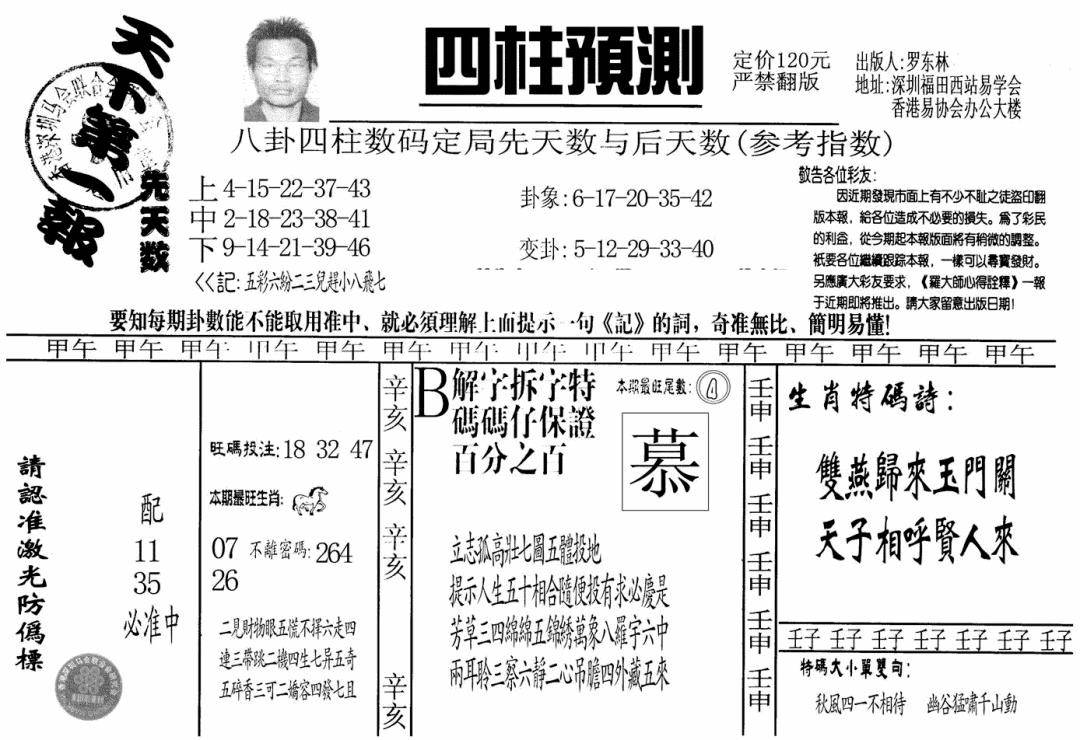 天下第一報
四柱預測
定价120元
严禁翻版
出版人:罗东林
地址:深圳福田西站易学会
香港易协会办公大楼
八卦四柱数码定局先天数与后天数(参考指数)
先天数
上4-15-22-37-43
中2-18-23-38-41
下9-14-21-39-46
<<記:五彩六紛二三兒趕小八飛七
卦象:6-17-20-35-42
变卦:5-12-29-33-40
敬告各位彩友:
因近期發現市面上有不少不耻之徒盜印翻
版本報,給各位造成不必要的損失。爲了彩民
的利益,從今期起本報版面將有稍微的調整。
衹要各位繼續跟踪本報,一樣可以尋寶發財。
另應廣大彩友要求,《羅大師心得詮釋》一報
于近期即將推出。請大家留意出版日期!
要知每期卦數能不能取用准中、就必須理解上面提示一句《記》的詞,奇准無比、簡明易懂!
甲午 甲午 甲午 甲午 甲午 甲午 甲午 甲午 甲午 甲午 甲午 甲午 甲午 甲午 甲午
請認准激光防僞標
配
11
35
必准中
旺碼投注:18 32 47
本期最旺生肖:
07 不離密碼:264
26
二見財物眼五慌不擇六走四
連三帶跳二機四生七昇五奇
五碎香三可二嬌容四發七且
辛亥 辛亥 辛亥 辛亥
B解字拆字特
碼碼仔保證
百分之百
本期最旺尾數:
慕
立志孤高壯七圖五體投地
提示人生五十相合隨便投有求必慶是
芳草三四綿綿五錦綉萬象八羅宇六中
兩耳聆三察六靜二心吊膽四外藏五來
壬申 壬申 壬申 壬申 壬申 壬申
生肖特碼詩:
雙燕歸來玉門關
天子相呼賢人來
壬子 壬子 壬子 壬子 壬子 壬子 壬子
特碼大小單雙句:
秋風四一不相待 幽谷猛嘯千山動